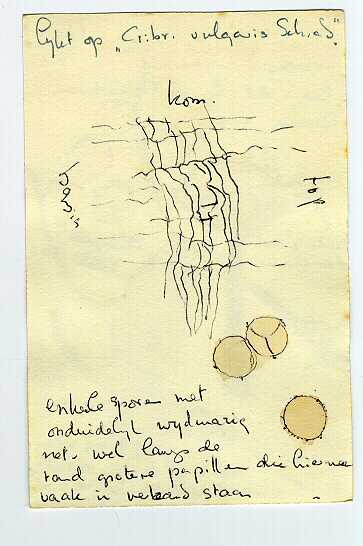 lijkt op "Cribr. vulgaris Schrad."
kom.
basis
top
enkele sporen met
onduidelijk wijdmazig
net. wel langs de
rand grotere papillen die hiermee
vaak in verband staan